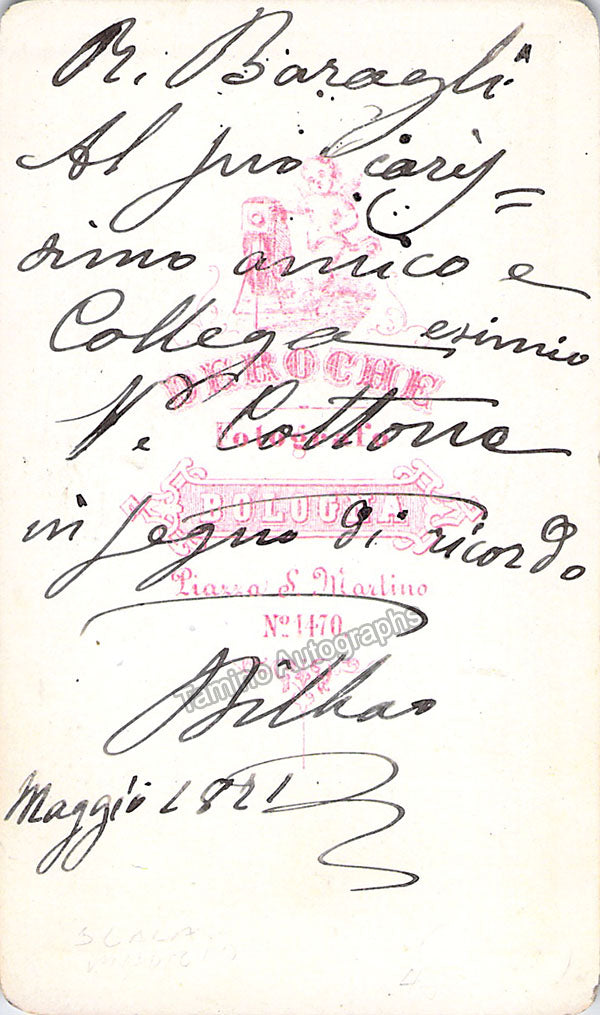 R. Baragli
Al suo caris=
simo amico e
Collega esimio
DEROCHE
Ve Cottone
Fotografo
BOLOGNA
in segno di ricordo
Piazza S. Martino
No 1470
Tamino Autographs
Bilbao
Maggio 1881
SCALA